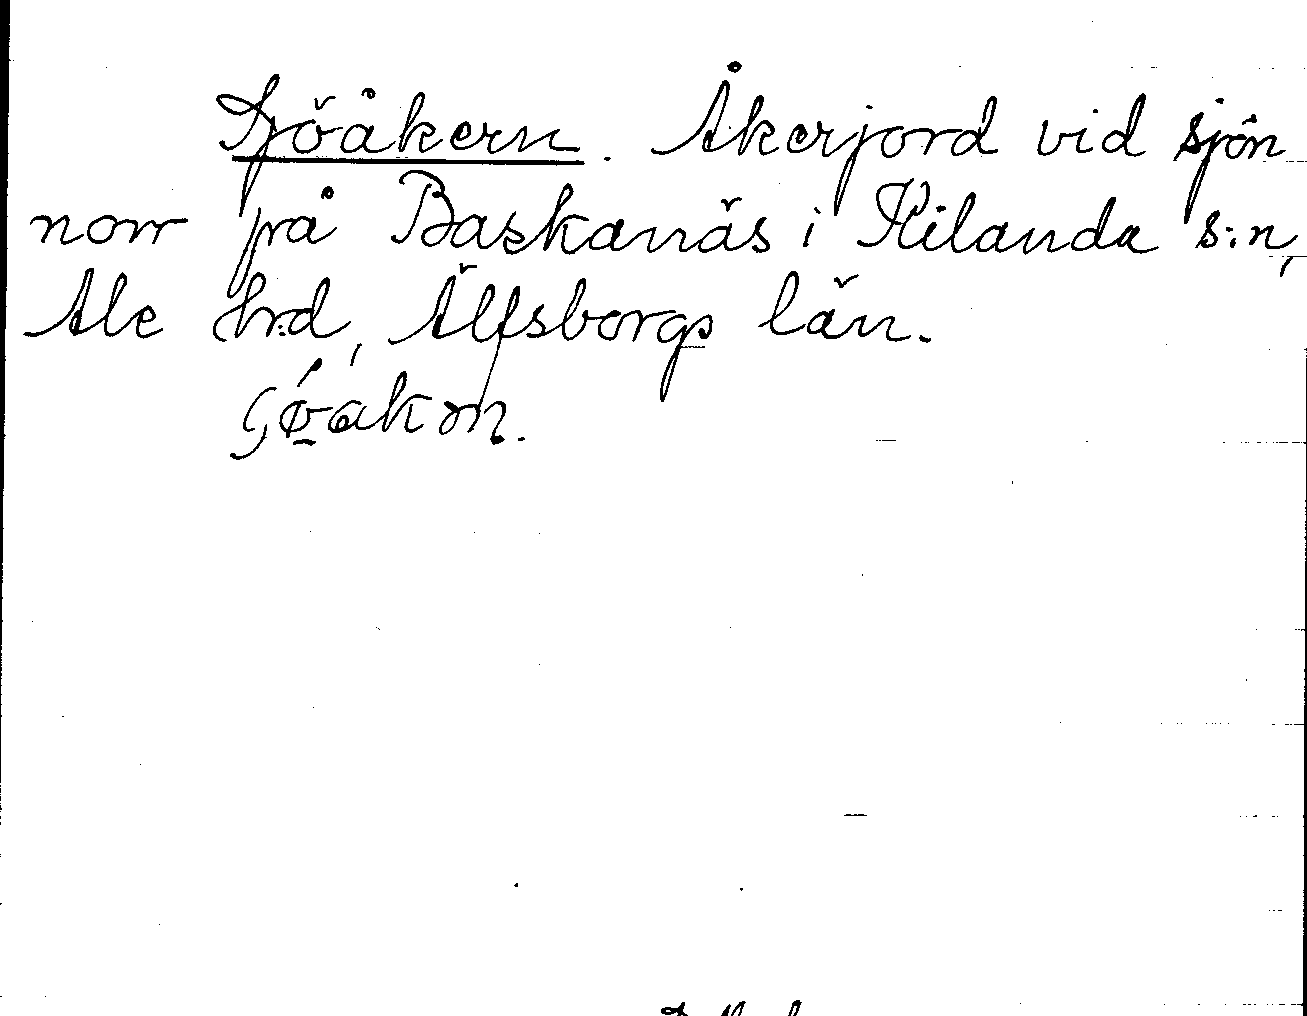 Sjöåkern. Åkerjord vid sjön
norr på Baskanäs i Kilanda s:n,
Ale hrd, Älfsborgs län.